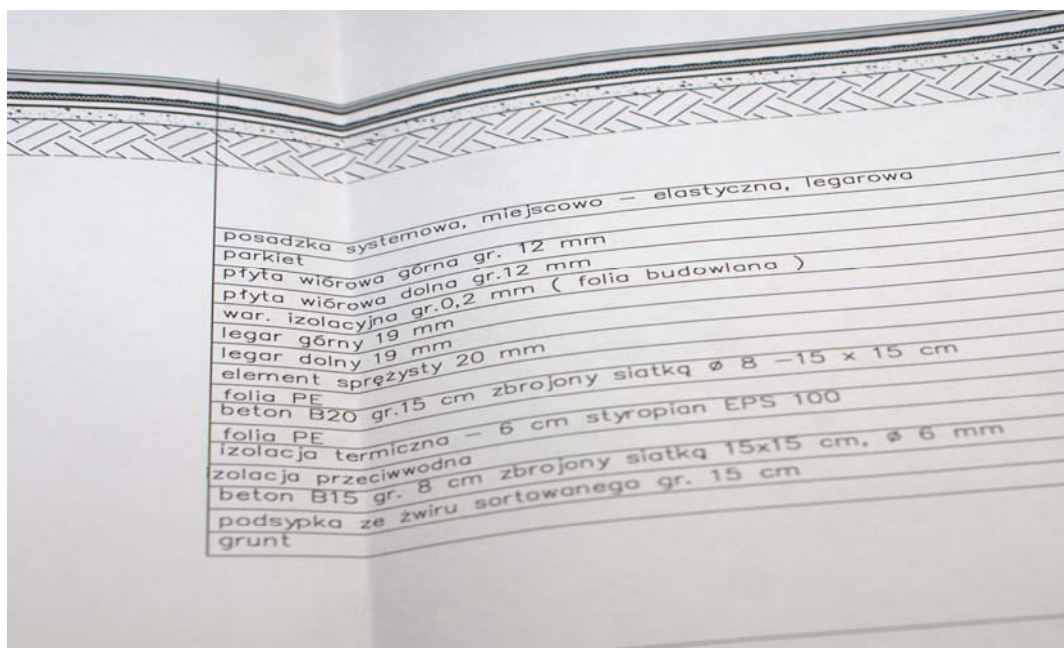 posadzka systemowa, miejscowo – elastyczna, legarowa
parkiet
płyta wiórowa górna gr. 12 mm
płyta wiórowa dolna gr.12 mm
war. izolacyjna gr.0,2 mm ( folia budowlana )
legar górny 19 mm
legar dolny 19 mm
element sprężysty 20 mm
folia PE
beton B20 gr.15 cm zbrojony siatką ø 8 –15 x 15 cm
folia PE
izolacja termiczna – 6 cm styropian EPS 100
izolacja przeciwwodna
beton B15 gr. 8 cm zbrojony siatką 15x15 cm, ø 6 mm
podsypka ze żwiru sortowanego gr. 15 cm
grunt